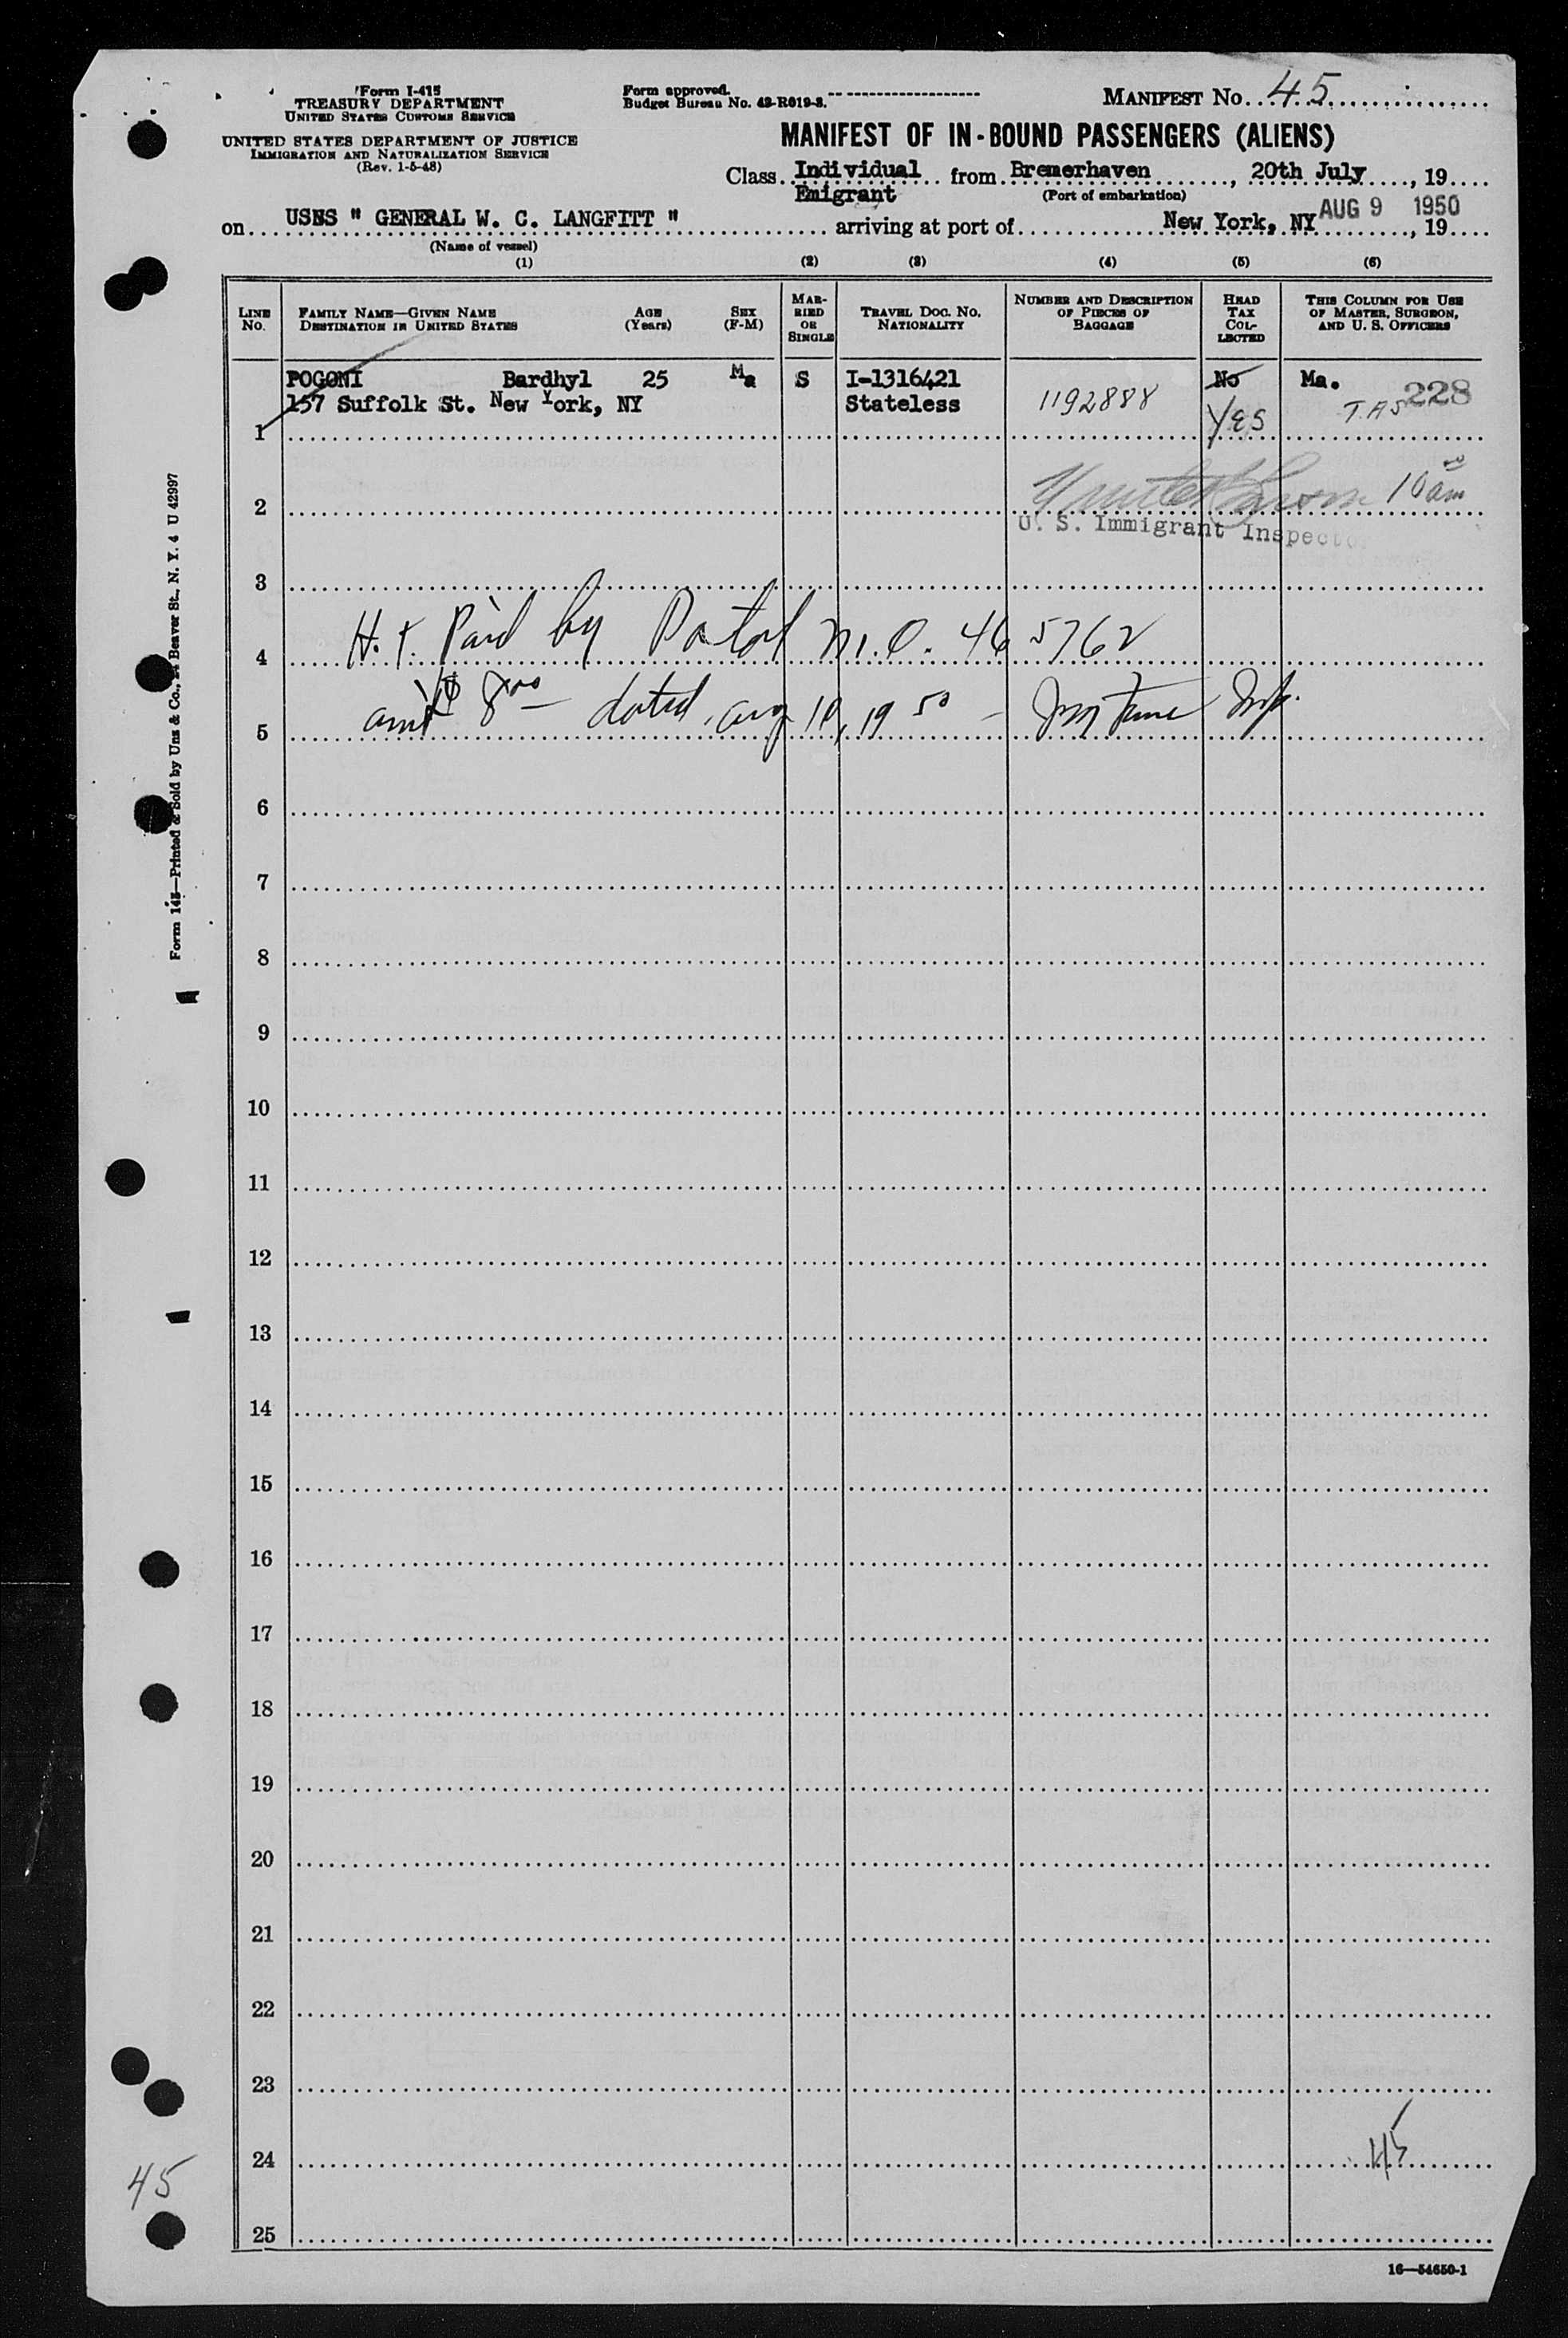 Form I-415
TREASURY DEPARTMENT
UNITED STATES CUSTOMS SERVICE
UNITED STATES DEPARTMENT OF JUSTICE
IMMIGRATION AND NATURALIZATION SERVICE
(Rev. 1-5-48)
Form approved.
Budget Bureau No. 43-R019-3.
MANIFEST NO. 45
MANIFEST OF IN-BOUND PASSENGERS (ALIENS)
Class Individual from Bremerhaven, 20th July, 19
Emigrant (Port of embarkation)
AUG 9 1950
on USNS " GENERAL W. C. LANGFITT " arriving at port of New York, NY, 19
(Name of vessel)
(1) (2) (3) (4) (5) (6)
LINE NO.
FAMILY NAME—GIVEN NAME
DESTINATION IN UNITED STATES
AGE (Years)
SEX (F-M)
MARRIED OR SINGLE
TRAVEL DOC. NO.
NATIONALITY
NUMBER AND DESCRIPTION OF PIECES OF BAGGAGE
HEAD TAX COLLECTED
THIS COLUMN FOR USE OF MASTER, SURGEON, AND U. S. OFFICERS
POGONI Bardhyl 25 Ma S I-1316421 No Ma. 228
157 Suffolk St. New York, NY Stateless 1192888 Yes T.A.S
1
10 00 am
2
U. S. Immigrant Inspector
3
H.T. Paid by Postal M.O. 465762
4
amt $8.00 dated Aug 10, 1950 – Insp.
5
6
7
8
9
10
11
12
13
14
15
16
17
18
19
20
21
22
23
24 45
25
45
16—54650-1
Form 145—Printed & Sold by Unz & Co., 24 Beaver St., N. Y. 4 U 42997